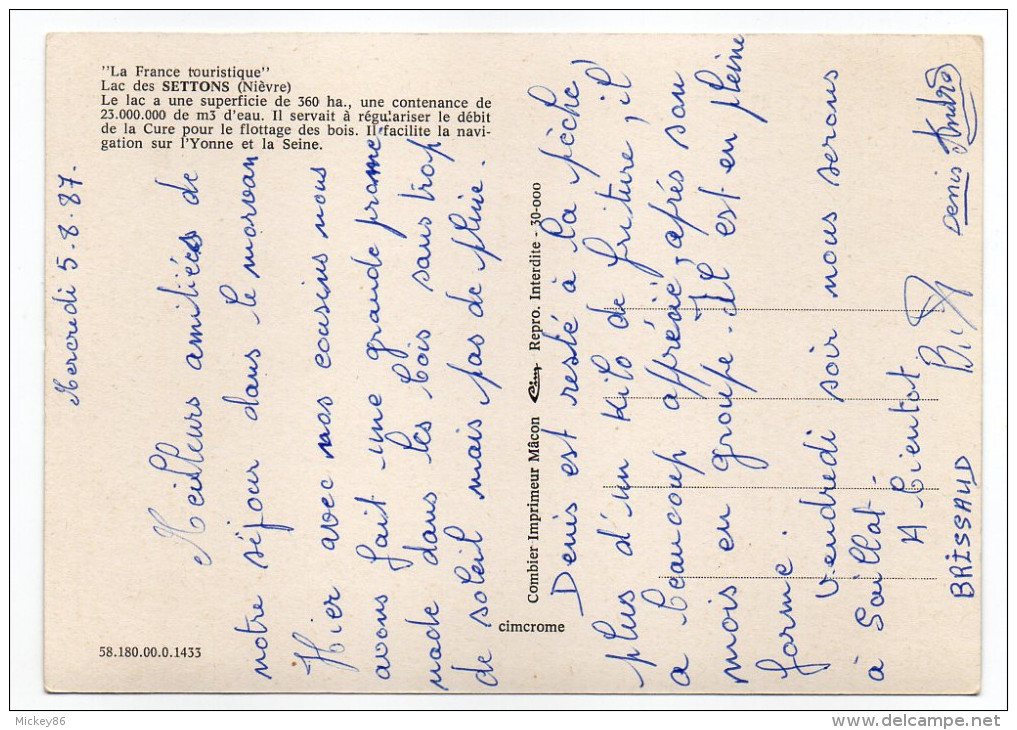 "La France touristique"
Lac des SETTONS (Nièvre)
Le lac a une superficie de 360 ha., une contenance de
23.000.000 de m3 d'eau. Il servait à régulariser le débit
de la Cure pour le flottage des bois. Il facilite la navi-
gation sur l'Yonne et la Seine.
Mercredi 5.8.87.
Meilleurs amitiées de
notre séjour dans le morvan
Hier avec nos cousins nous
avons fait une grande prome
nade dans les bois sans trop
de soleil mais pas de pluie.
Combier Imprimeur Mâcon Cim Repro. Interdite - 30-000
Denis est resté à la pêche
plus d'un kilo de friture, il
a beaucoup apprécié, après son
mois en groupe. Il est en pleine
forme.
Vendredi soir nous serons
à Saillat.
A bientot
BRISSAUD
Denis André
cimcrome
58.180.00.0.1433
Mickey86
www.delcampe.net